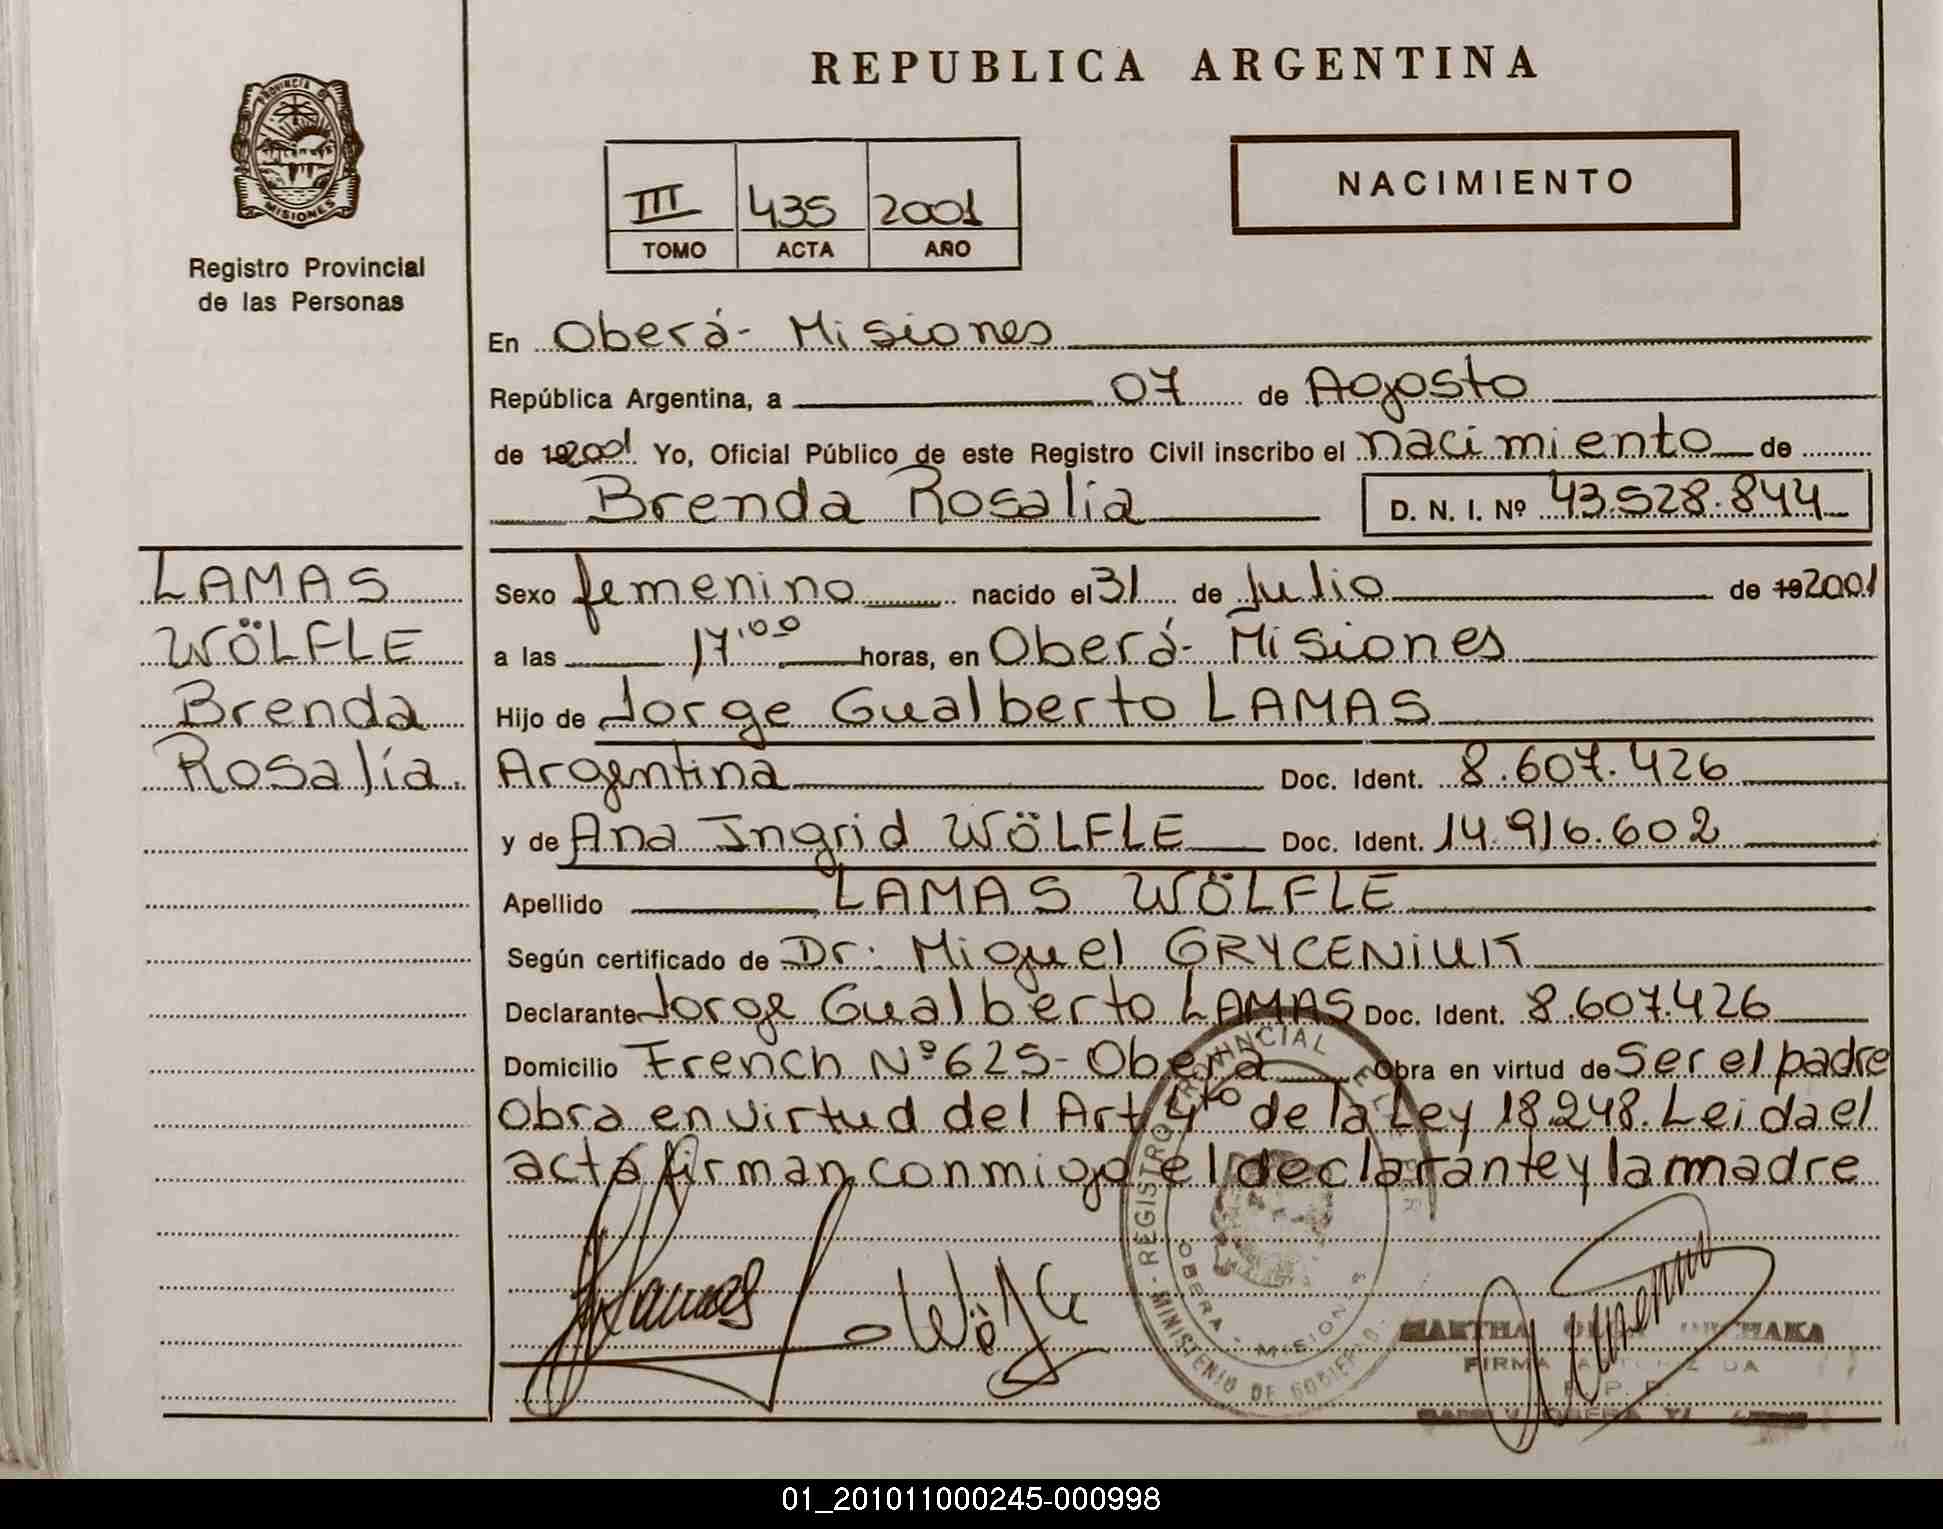 PROVINCIA DE
MISIONES
Registro Provincial
de las Personas
LAMAS
WÖLFLE
Brenda
Rosalía.
REPUBLICA ARGENTINA
III 435 2001
TOMO ACTA AÑO
NACIMIENTO
En Oberá- Misiones
República Argentina, a 07 de Agosto
de 192001 Yo, Oficial Público de este Registro Civil inscribo el nacimiento de
Brenda Rosalía D. N. I. Nº 43.528.844
Sexo femenino nacido el 31 de Julio de 192001
a las 17:00 horas, en Oberá- Misiones
Hijo de Jorge Gualberto LAMAS
Argentina Doc. Ident. 8.607.426
y de Ana Ingrid WÖLFLE Doc. Ident. 14.916.602
Apellido LAMAS WÖLFLE
Según certificado de Dr. Miguel GRYCENIUK
Declarante Jorge Gualberto LAMAS Doc. Ident. 8.607.426
Domicilio French Nº 625- Oberá Obra en virtud de Ser el padre
Obra en virtud del Art 4to de la Ley 18.248. Leida el
acta firman conmigo el declarante y la madre
REGISTRO PROVINCIAL DE LAS
MINISTERIO DE GOBIERNO
OBERA - MISIONES
MARTHA
FIRMA AUTORIZADA
01_201011000245-000998